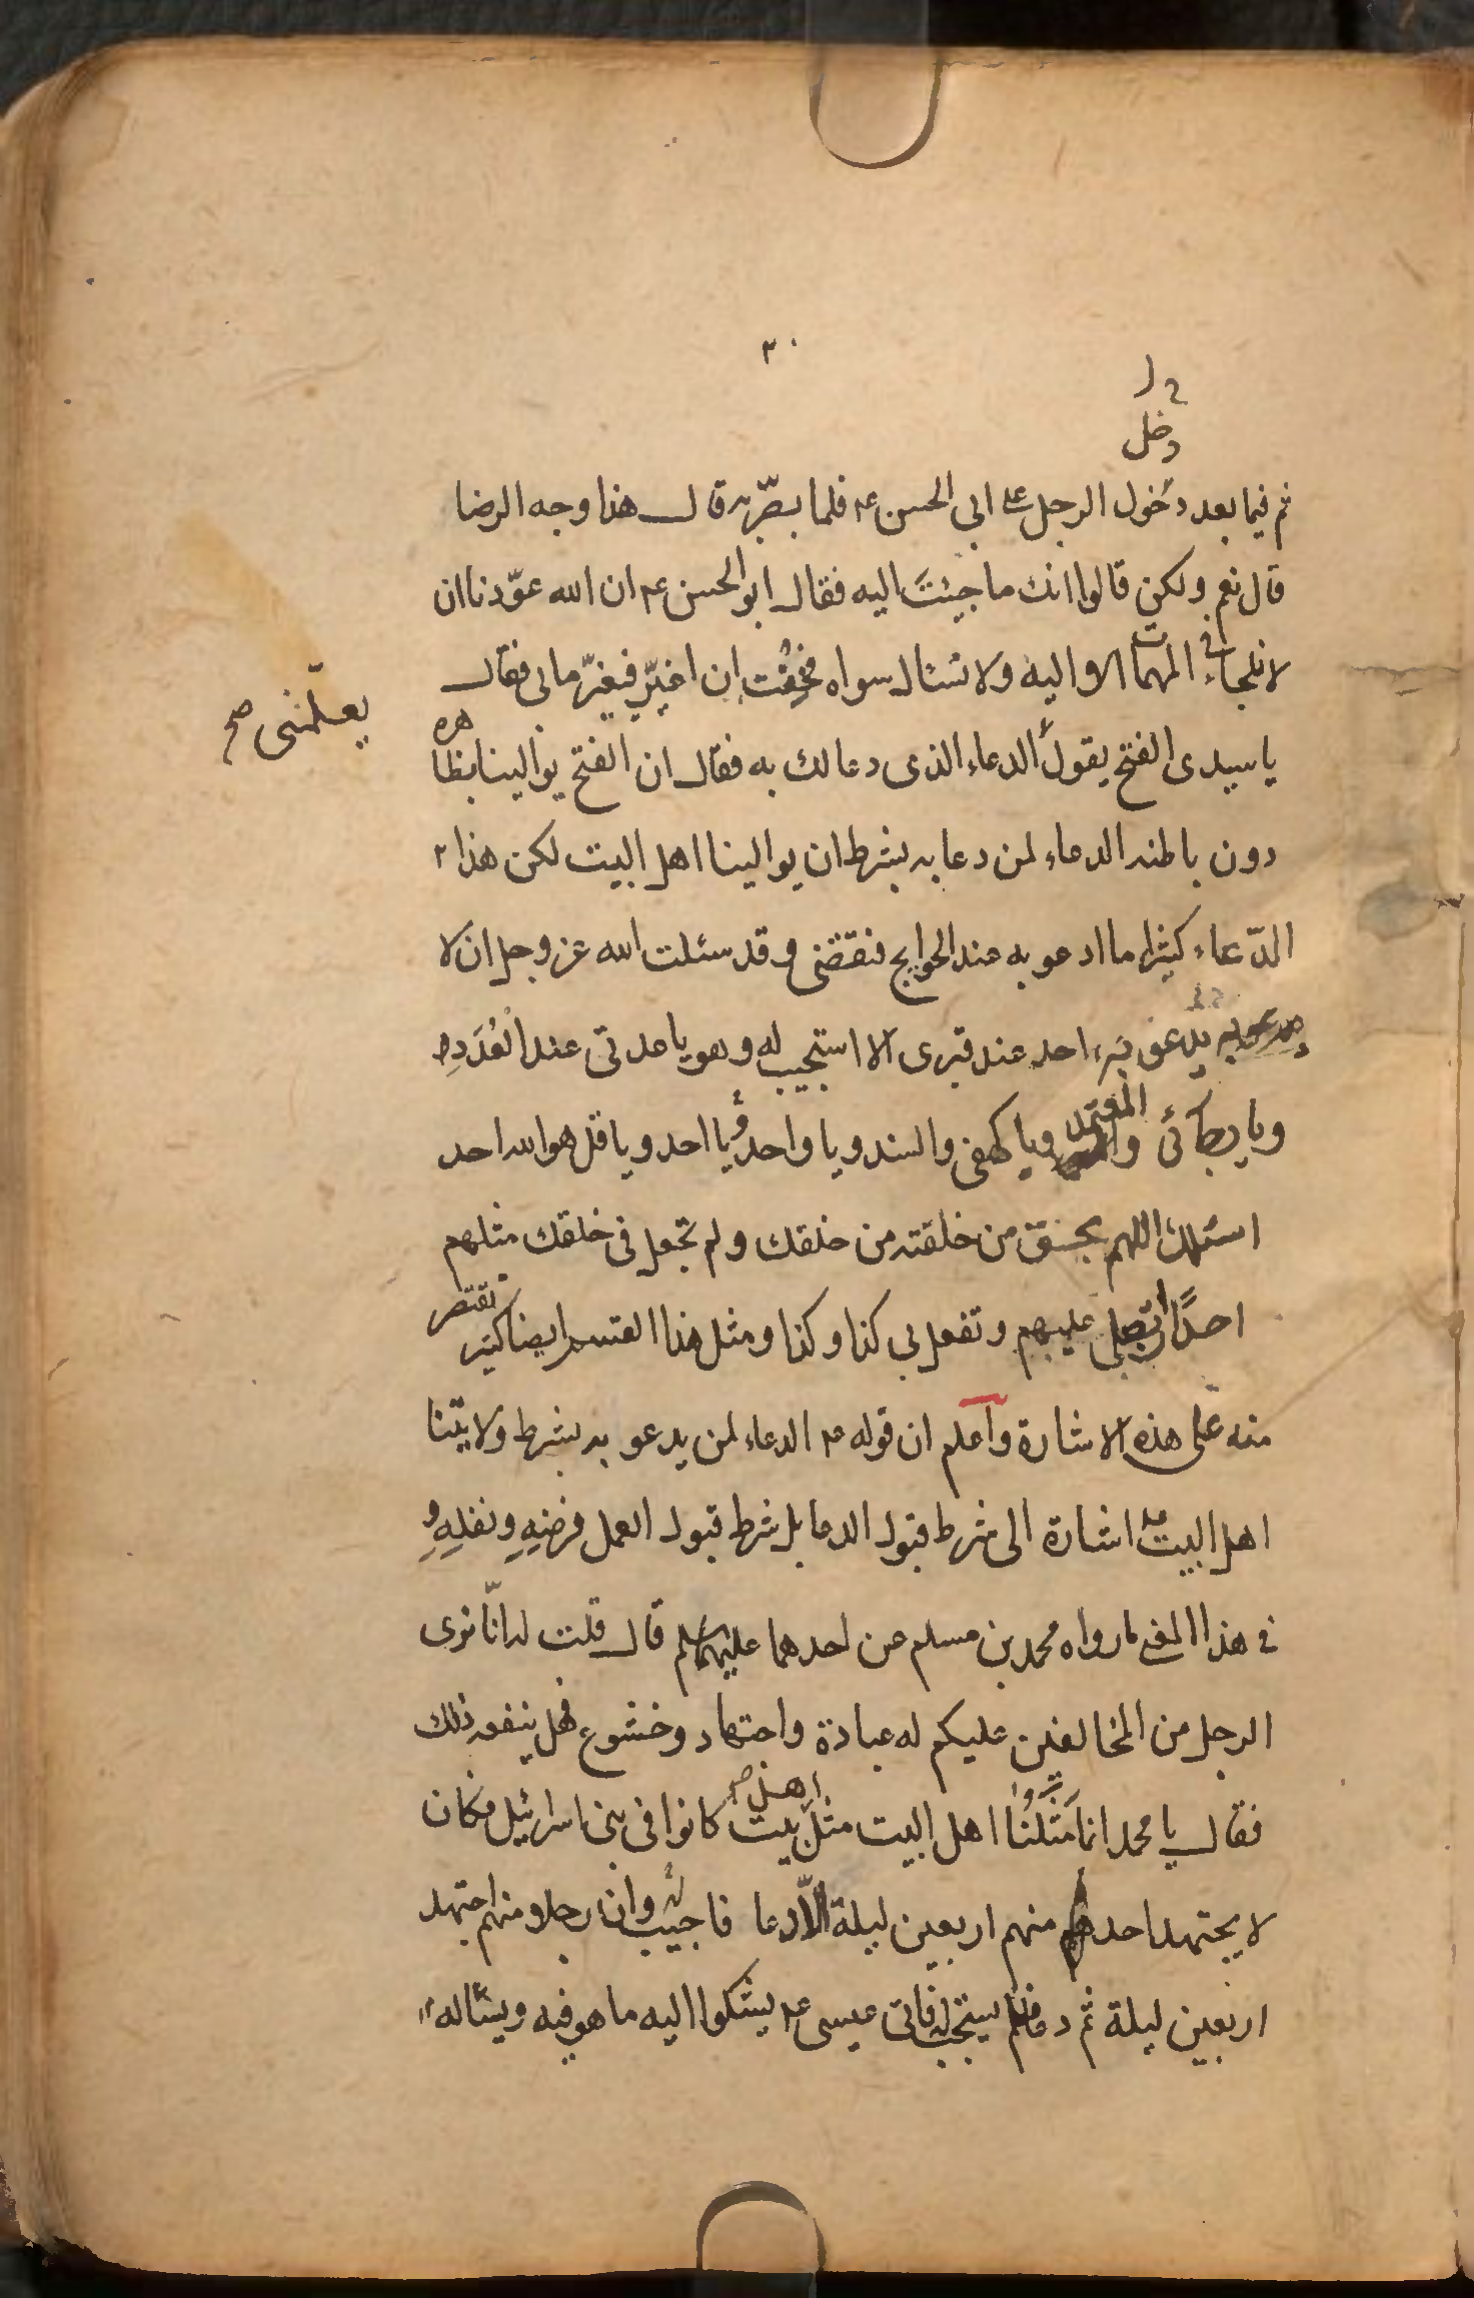 ٣٠
دخل
ثم فيما بعد دخول الرجل على ابى الحسن ع فلما بصر به قال هذا وجه الرضا
قال نعم ولكن قالوا انك ما جيئت اليه فقال ابو الحسن ع ان الله عوّدنا ان
لا نلجاء فى المهمات الا اليه ولا نسئال سواه فخفت ان اغيّر فيغيّر ما بى فقال
يا سيدى الفتح يقول الدعاء الذى دعا لك به فقال ان الفتح يوالينا بظاهره
يعلّمنى صح
دون باطنه الدعاء لمن دعا به بشرط ان يوالينا اهل البيت لكن هذا
الدّعاء كثيرا ما ادعو به عند الحوايج فتقضى وقد سئلت الله عز وجل ان لا
يدعو به احد عند قبرى الا استجيب له وهو يا عدتى عند العُدَدِ
ويا رجائى والمعتمد ويا كهفى والسند ويا واحد ويا احد ويا قل هو الله احد
اسئلك اللهم بحق من خلقته من خلقك ولم تجعل فى خلقك مثلهم
احدًا ان تصلى عليهم وتفعل بى كذا وكذا ومثل هذا القسم ايضا كثير نقتصر
منه على هذه الاشارة واعلم ان قوله ع الدعاء لمن يدعو به بشرط ولايتنا
اهل البيت اشارة الى شرط قبول الدعا بل شرط قبول العمل فرضِهِ ونفلِهِ و
فى هذا المعنى ما رواه محمد بن مسلم عن احدهما عليهما السلم قال قلت له انّا نرى
الرجل من المخالفين عليكم له عبادة واجتهاد وخشوع فهل ينفعه ذلك
فقال يا محمد انما مَثَلُنا اهل البيت مثل اهل بيت كانوا فى بنى اسرائيل فكان
لا يجتهد احد منهم اربعين ليلة الّا دعا فاجيب له وان رجلا منهم اجتهد
اربعين ليلة ثم دعا فلم يستجب له فاتى عيسى ع يشكوا اليه ما هو فيه ويسئاله